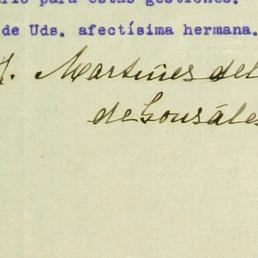 para estas gestiones.
de Uds. afectísima hermana.
Martínes del
de Gonsáles